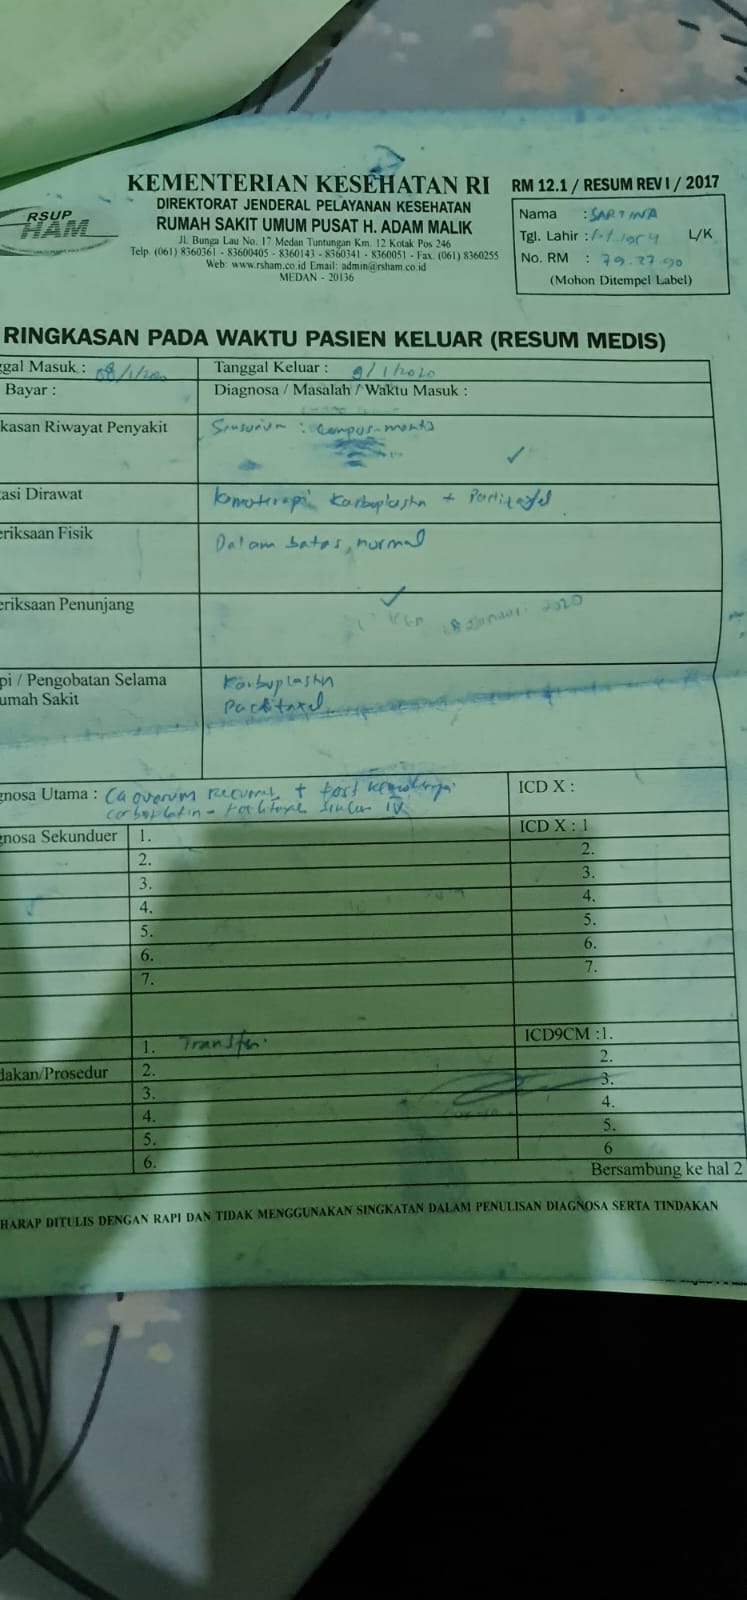 RSUP
HAM
KEMENTERIAN KESEHATAN RI
DIREKTORAT JENDERAL PELAYANAN KESEHATAN
RUMAH SAKIT UMUM PUSAT H. ADAM MALIK
Jl. Bunga Lau No. 17 Medan Tuntungan Km. 12 Kotak Pos 246
Telp. (061) 8360361 - 83600405 - 8360143 - 8360341 - 8360051 - Fax. (061) 8360255
Web: www.rsham.co.id Email: admin@rsham.co.id
MEDAN - 20136
RM 12.1 / RESUM REV I / 2017
Nama : SARTINA
Tgl. Lahir : L/K
No. RM : 79.27.90
(Mohon Ditempel Label)
RINGKASAN PADA WAKTU PASIEN KELUAR (RESUM MEDIS)
ggal Masuk : 08/1/2020 Tanggal Keluar : 9/1/2020
Bayar : Diagnosa / Masalah / Waktu Masuk :
kasan Riwayat Penyakit Sensorium : compos-mentis
asi Dirawat Kemoterapi Karboplastin +
eriksaan Fisik Dalam batas normal
eriksaan Penunjang
Januari 2020
pi / Pengobatan Selama Karboplastin
umah Sakit Paclitaxel
gnosa Utama : Ca ovarum + post kemoterapi ICD X :
carboplatin - IV
gnosa Sekunduer 1. ICD X : 1
2. 2.
3. 3.
4. 4.
5. 5.
6. 6.
7. 7.
1. Transfer ICD9CM :1.
dakan/Prosedur 2. 2.
3. 3.
4. 4.
5. 5.
6. 6
Bersambung ke hal 2
HARAP DITULIS DENGAN RAPI DAN TIDAK MENGGUNAKAN SINGKATAN DALAM PENULISAN DIAGNOSA SERTA TINDAKAN